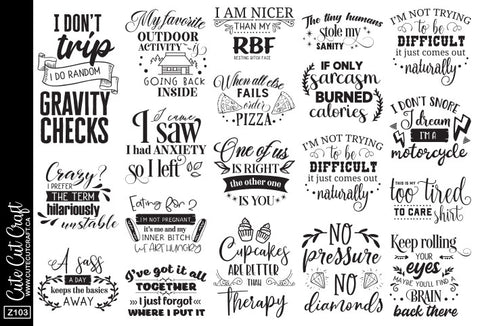 I DON'T
trip
I DO RANDOM
GRAVITY
CHECKS
Crazy?
I PREFER
THE TERM
hilariously
unstable
A sass
A DAY
keeps the basics
AWAY
My favorite
OUTDOOR
ACTIVITY
is
GOING BACK
INSIDE
I came
I saw
I had ANXIETY
so I left
Eating for 2
I'M NOT PREGNANT
it's me and my
INNER BITCH
WE ARE HUNGRY
I've got it all
TOGETHER
I just forgot
WHERE I PUT IT
I AM NICER
THAN MY
RBF
RESTING BITCH FACE
When all else
FAILS
order
PIZZA
One of us
IS RIGHT
the other one
IS YOU
Cupcakes
ARE BETTER
THAN
Therapy
The tiny humans
stole my
SANITY
IF ONLY
sarcasm
BURNED
calories
I'M NOT TRYING
to be
DIFFICULT
it just comes out
naturally
NO
pressure
NO
diamonds
I'M NOT TRYING
to be
DIFFICULT
it just comes out
naturally
I DON'T SNORE
I dream
I'M A
motorcycle
THIS IS MY
too
TIRED
TO CARE
shirt
Keep rolling
YOUR
eyes
MAYBE YOU'LL FIND A
BRAIN
back there
Cute Cut Craft
WWW.CUTECUTCRAFT.CA
Z103